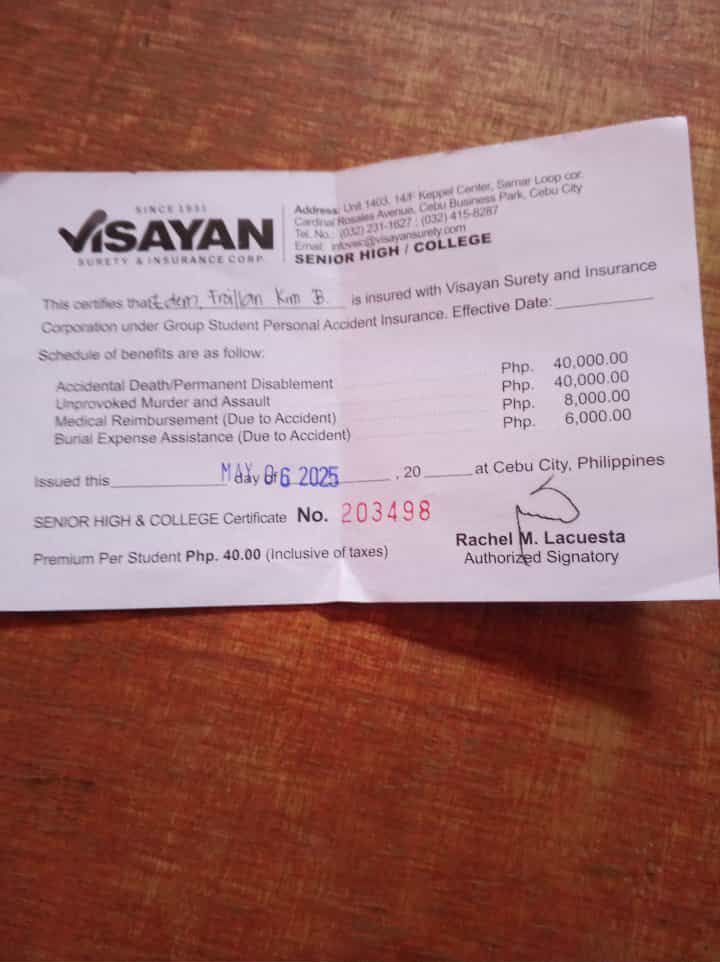 SINCE 1931
VISAYAN
SURETY & INSURANCE CORP.
Address: Unit 1403, 14/F Keppel Center, Samar Loop cor.
Cardinal Rosales Avenue, Cebu Business Park, Cebu City
Tel. No.: (032) 231-1627 ; (032) 415-8287
Email: infovsic@visayansurety.com
SENIOR HIGH / COLLEGE
This certifies that Edem, Froilan Kim B. is insured with Visayan Surety and Insurance
Corporation under Group Student Personal Accident Insurance. Effective Date:
Schedule of benefits are as follow:
Accidental Death/Permanent Disablement Php. 40,000.00
Unprovoked Murder and Assault Php. 40,000.00
Medical Reimbursement (Due to Accident) Php. 8,000.00
Burial Expense Assistance (Due to Accident) Php. 6,000.00
Issued this MAY 06 2025 day of , 20 at Cebu City, Philippines
SENIOR HIGH & COLLEGE Certificate No. 203498
Premium Per Student Php. 40.00 (Inclusive of taxes)
Rachel M. Lacuesta
Authorized Signatory